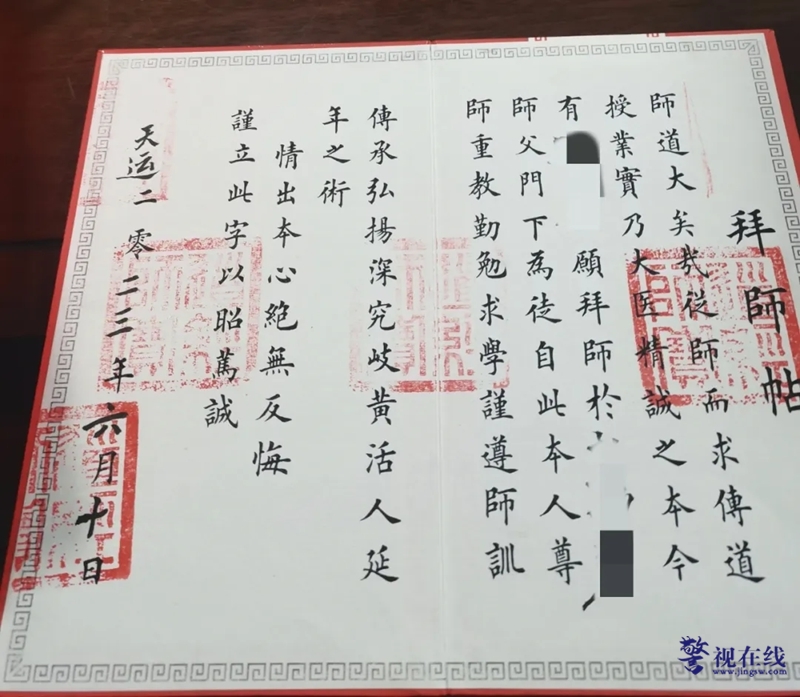 拜師帖
師道大矣哉從師而求傳道
授業實乃大医精誠之本今
有
願拜師於
師父門下為徒自此本人尊
師重教勤勉求學謹遵師訓
傳承弘揚深究岐黃活人延
年之術
情出本心絕無反悔
謹立此字以昭篤誠
天运二零二三年六月十日
警视在线
www.jingsw.com